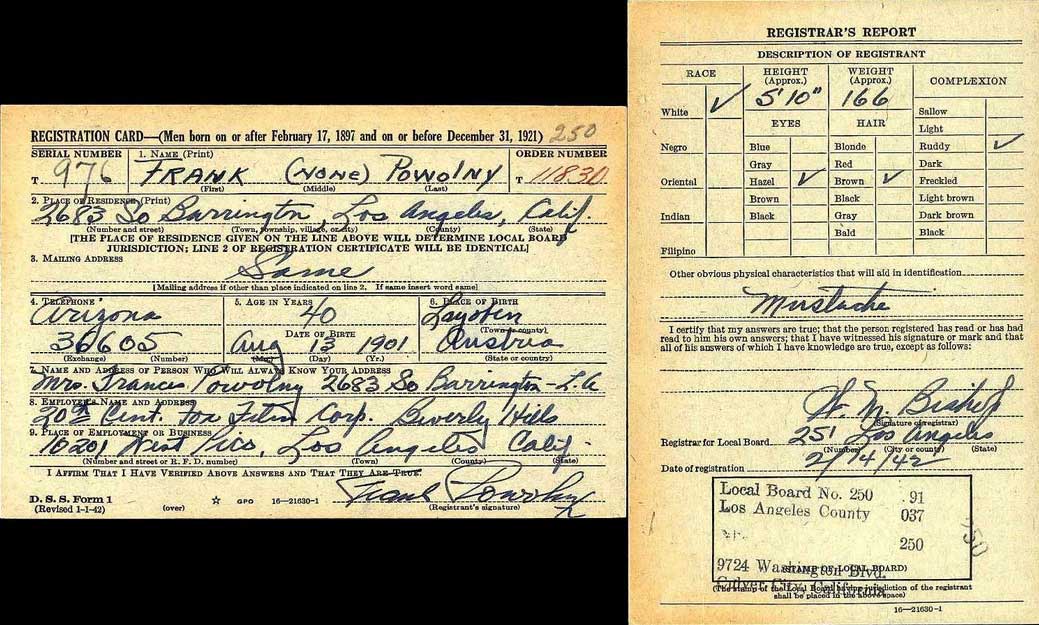 REGISTRATION CARD—(Men born on or after February 17, 1897 and on or before December 31, 1921) 250
SERIAL NUMBER 1. NAME (Print) ORDER NUMBER
T 976 FRANK (NONE) POWOLNY T 11830
(First) (Middle) (Last)
2. PLACE OF RESIDENCE (Print)
2683 So Barrington, Los Angeles, Calif.
(Number and street) (Town, township, village, or city) (County) (State)
[THE PLACE OF RESIDENCE GIVEN ON THE LINE ABOVE WILL DETERMINE LOCAL BOARD
JURISDICTION; LINE 2 OF REGISTRATION CERTIFICATE WILL BE IDENTICAL]
3. MAILING ADDRESS
Same
[Mailing address if other than place indicated on line 2. If same insert word same]
4. TELEPHONE 5. AGE IN YEARS 6. PLACE OF BIRTH
Arizona 40
(Town or county)
DATE OF BIRTH
36605 Aug 13 1901 Austria
(Exchange) (Number) (Mo.) (Day) (Yr.) (State or country)
7. NAME AND ADDRESS OF PERSON WHO WILL ALWAYS KNOW YOUR ADDRESS
Mrs. Frances Powolny 2683 So Barrington - L.A
8. EMPLOYER'S NAME AND ADDRESS
20th Cent. Fox Film Corp. Beverly Hills
9. PLACE OF EMPLOYMENT OR BUSINESS
10201 West Pico, Los Angeles Calif.
(Number and street or R. F. D. number) (Town) (County) (State)
I AFFIRM THAT I HAVE VERIFIED ABOVE ANSWERS AND THAT THEY ARE TRUE.
Frank Powolny
D. S. S. Form 1
(Revised 1-1-42) (over) ☆ GPO 16—21630-1 (Registrant's signature)
REGISTRAR'S REPORT
DESCRIPTION OF REGISTRANT
RACE HEIGHT (Approx.) WEIGHT (Approx.) COMPLEXION
White ✓ 5'10" 166 Sallow
EYES HAIR Light
Negro Blue Blonde Ruddy ✓
Gray Red Dark
Oriental Hazel ✓ Brown ✓ Freckled
Brown Black Light brown
Indian Black Gray Dark brown
Bald Black
Filipino
Other obvious physical characteristics that will aid in identification
Mustache
I certify that my answers are true; that the person registered has read or has had
read to him his own answers; that I have witnessed his signature or mark and that
all of his answers of which I have knowledge are true, except as follows:
(Signature of registrar)
Registrar for Local Board 251 Los Angeles
(Number) (City or county) (State)
Date of registration 2/14/42
Local Board No. 250 91
Los Angeles County 037
250
9724 Washington Blvd.
(STAMP OF LOCAL BOARD)
Culver City, California
(The stamp of the Local Board having jurisdiction of the registrant
shall be placed in the above space)
16—21630-1